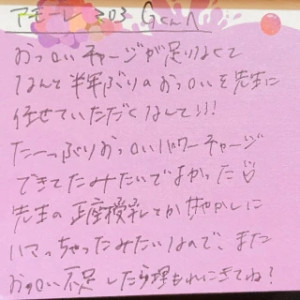 アモーレ 303 Gくんへ
おっぱいチャージが足りなくて
なんと半年ぶりのおっぱいを先生に
任せていただくなんて!!!
たーっぷりおっぱいパワーチャージ
できてたみたいでよかった
先生の正座授乳でか甘やかしに
ハマっちゃったみたいなので、また
おっぱい不足したら埋もれにきてね?